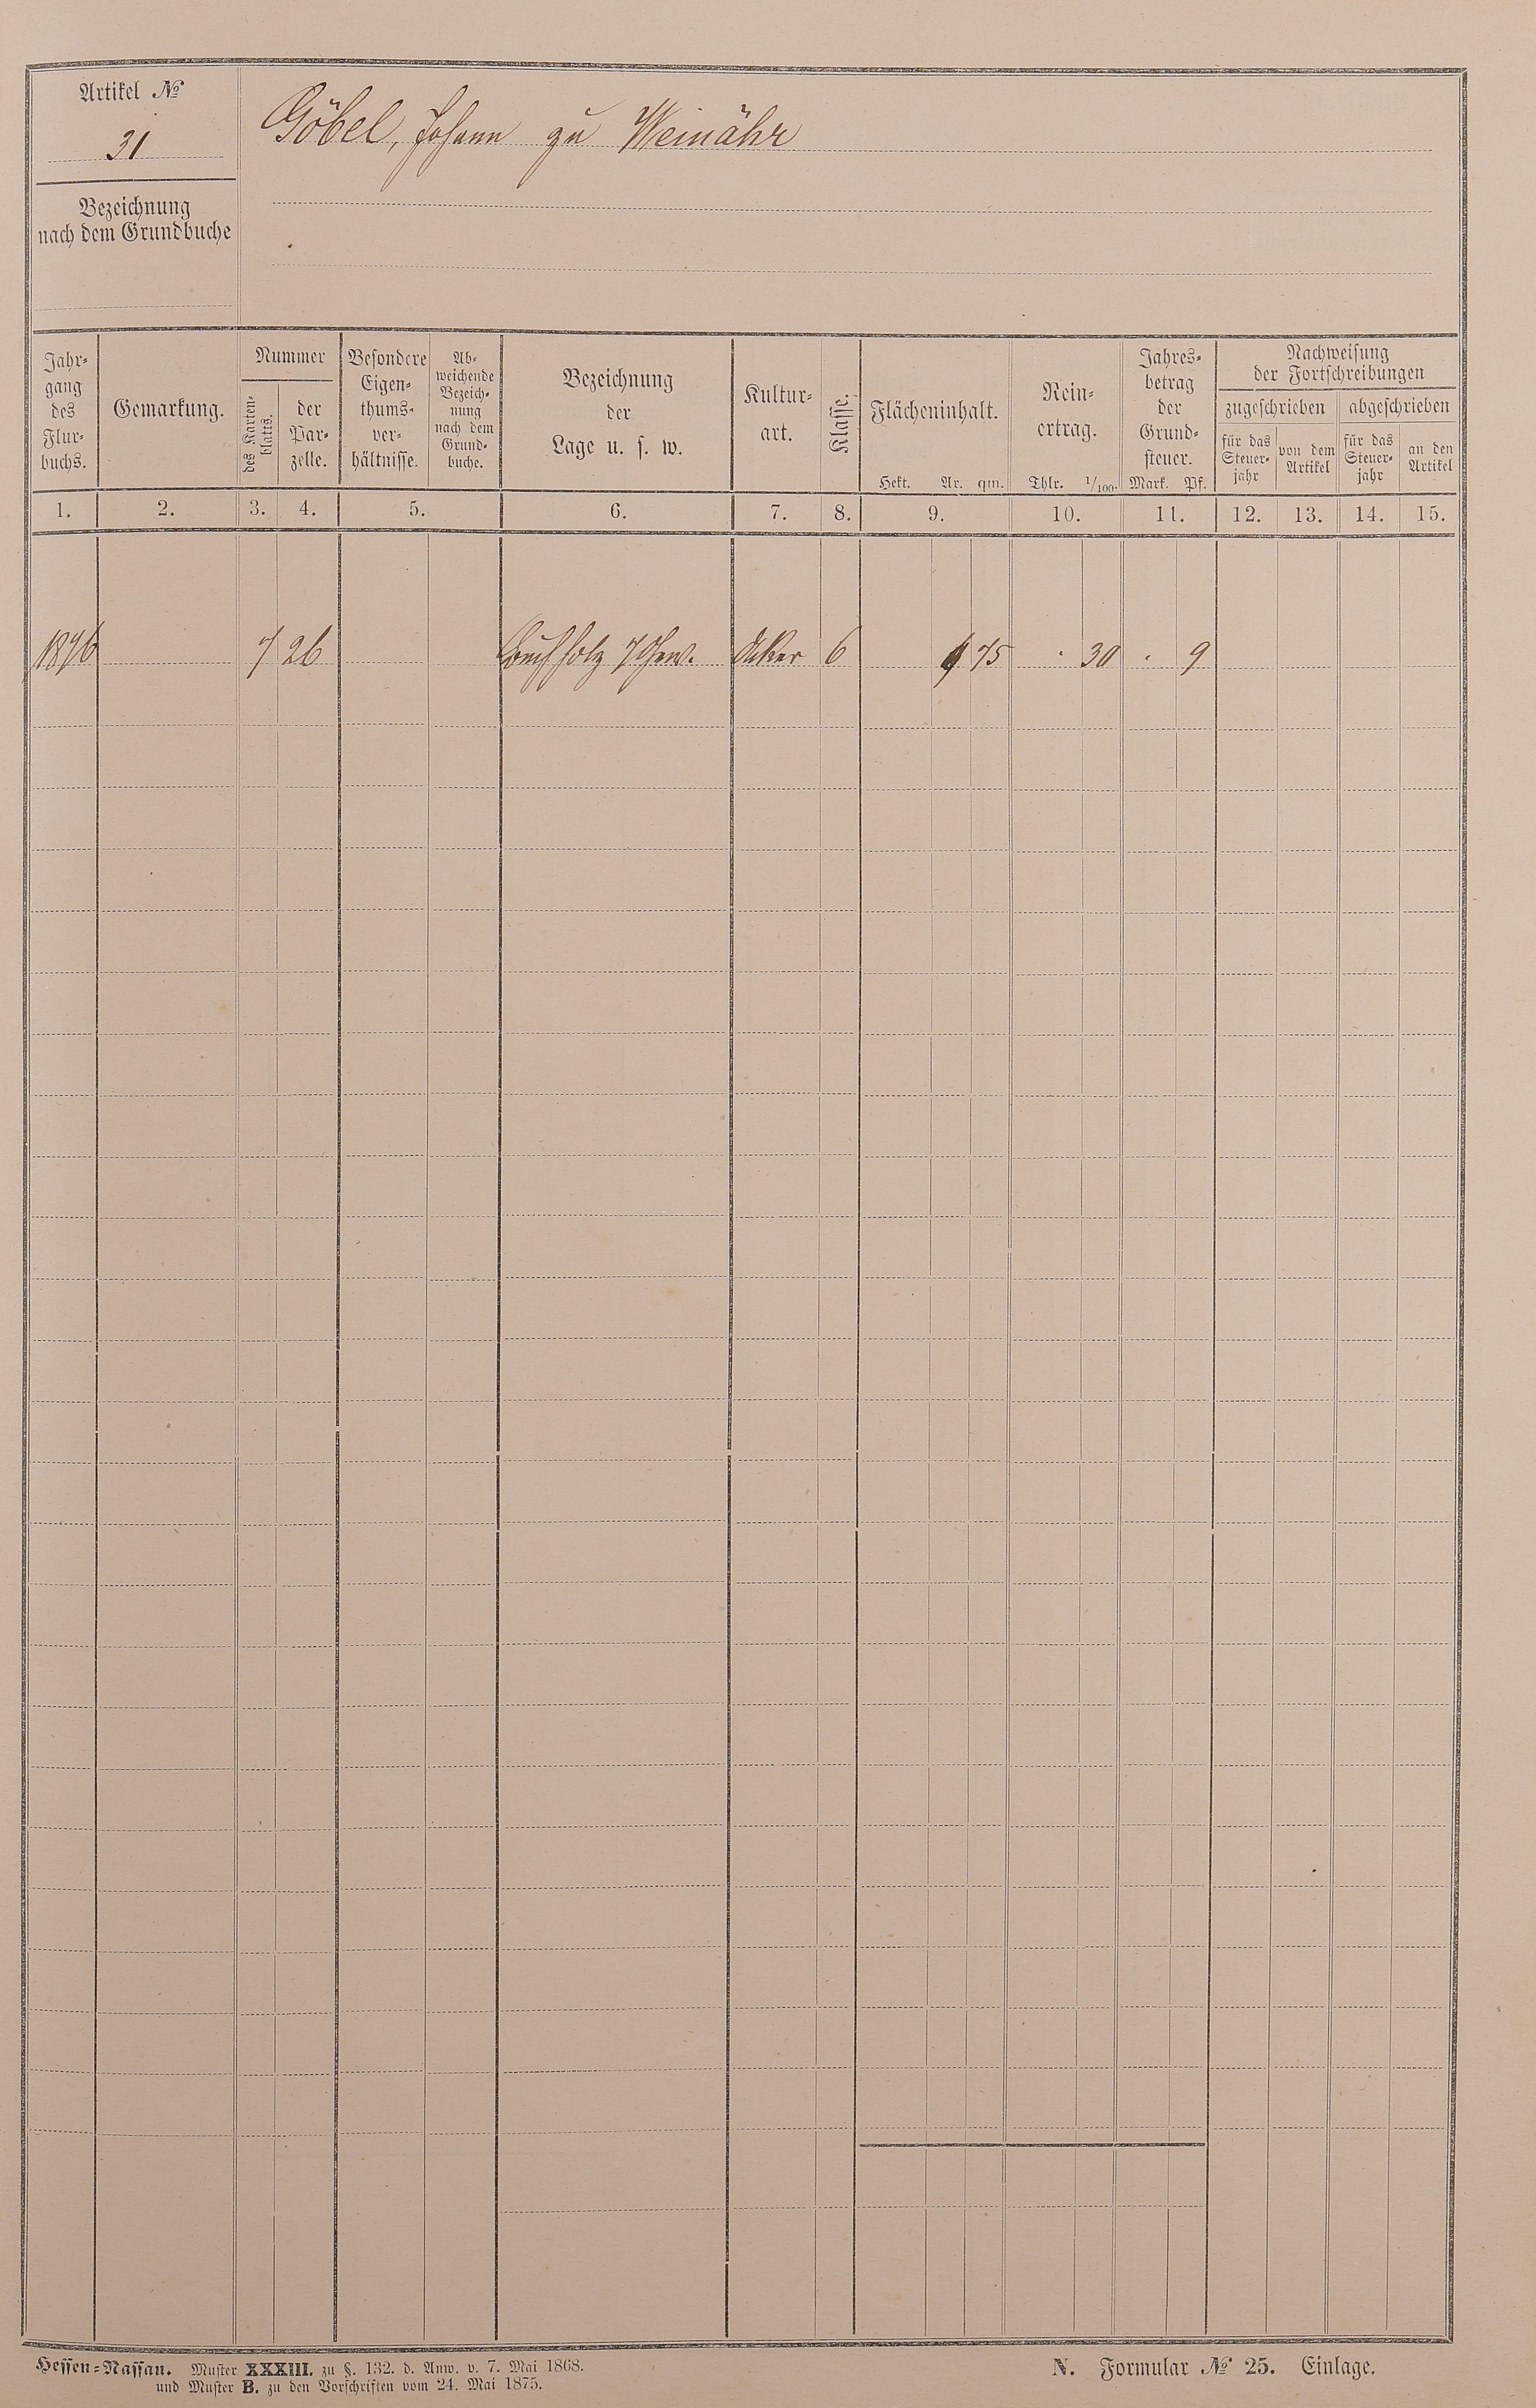 Artikel №
31
Göbel, Johann zu Weinähr
Bezeichnung
nach dem Grundbuche
Jahr-
gang
des
Flur-
buchs.
Gemarkung.
Nummer
des Karten-
blatts.
der
Par-
zelle.
Besondere
Eigen-
thums-
ver-
hältnisse.
Ab-
weichende
Bezeich-
nung
nach dem
Grund-
buche.
Bezeichnung
der
Lage u. s. w.
Kultur-
art.
Klasse.
Flächeninhalt.
Hekt. Ar. qm.
Rein-
ertrag.
Thlr. 1/100.
Jahres-
betrag
der
Grund-
steuer.
Mark. Pf.
Nachweisung
der Fortschreibungen
zugeschrieben abgeschrieben
für das
Steuer-
jahr
von dem
Artikel
für das
Steuer-
jahr
an den
Artikel
1. 2. 3. 4. 5. 6. 7. 8. 9. 10. 11. 12. 13. 14. 15.
1876 7 26 Buchholz 7 Gew. Acker 6 75 . 30 . 9
Hessen-Nassau. Muster XXXIII. zu §. 132. d. Anw. v. 7. Mai 1868.
und Muster B. zu den Vorschriften vom 24. Mai 1875.
N. Formular № 25. Einlage.